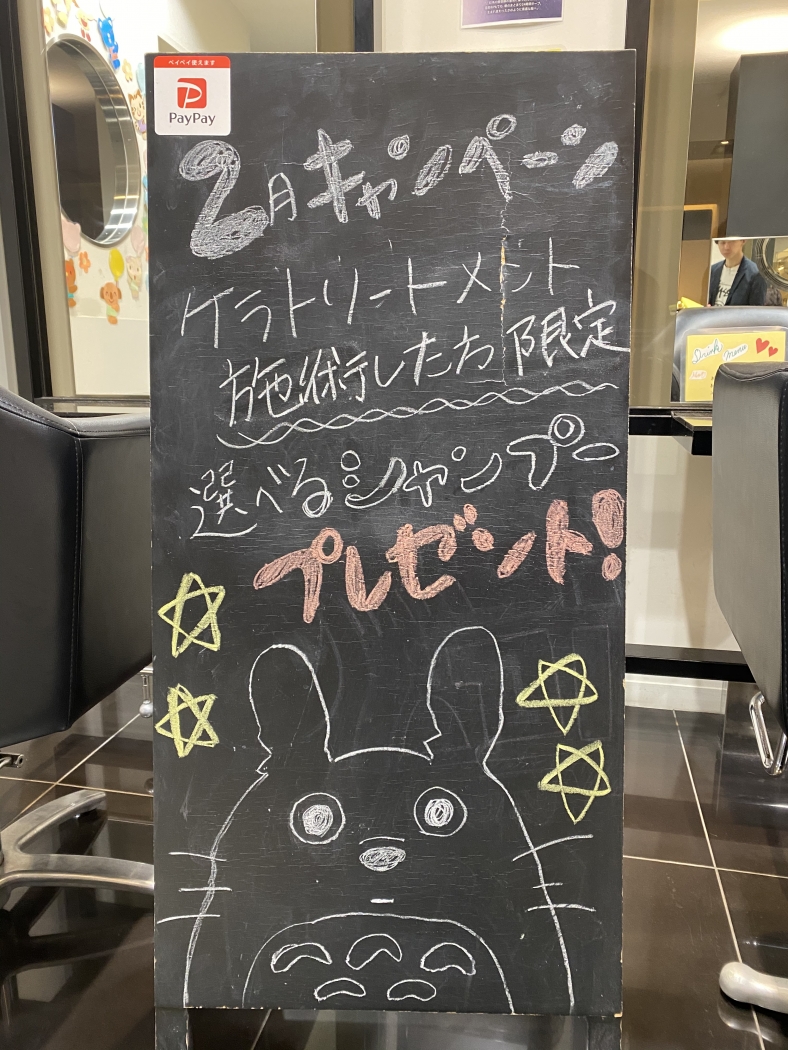 ペイペイ使えます
PayPay
2月キャンペーン
ケラトリートメント
施術した方限定
選べるシャンプー
プレゼント!
Drink Menu